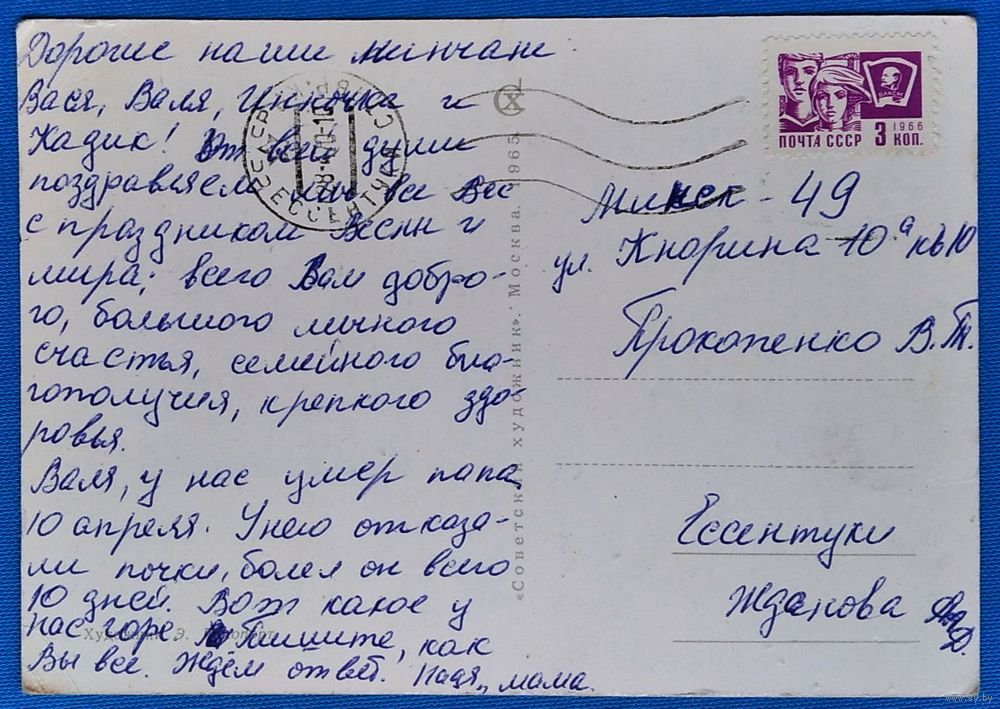 Дорогие наши минчане
Вася, Валя, Инночка и
Жадик! От всей души
поздравляем мы все Вас
с праздником Весны и
мира; всего Вам добро-
го, большого личного
счастья, семейного бла-
гополучия, крепкого здо-
ровья.
Валя, у нас умер папа
10 апреля. У него отказа-
ли почки, болел он всего
10 дней. Вот какое у
нас горе. Пишите, как
Вы все. Ждём ответ. Надя, мама.
Художник Э.
«Советский художник». Москва. 1965
ЕССЕНТУКИ
ПОЧТА СССР 3 КОП.
1966
ВЛКСМ
Минск - 49
ул. Кнорина 10а кв 10
Прокопенко В.Т.
Ессентуки
Жданова
www.ay.by